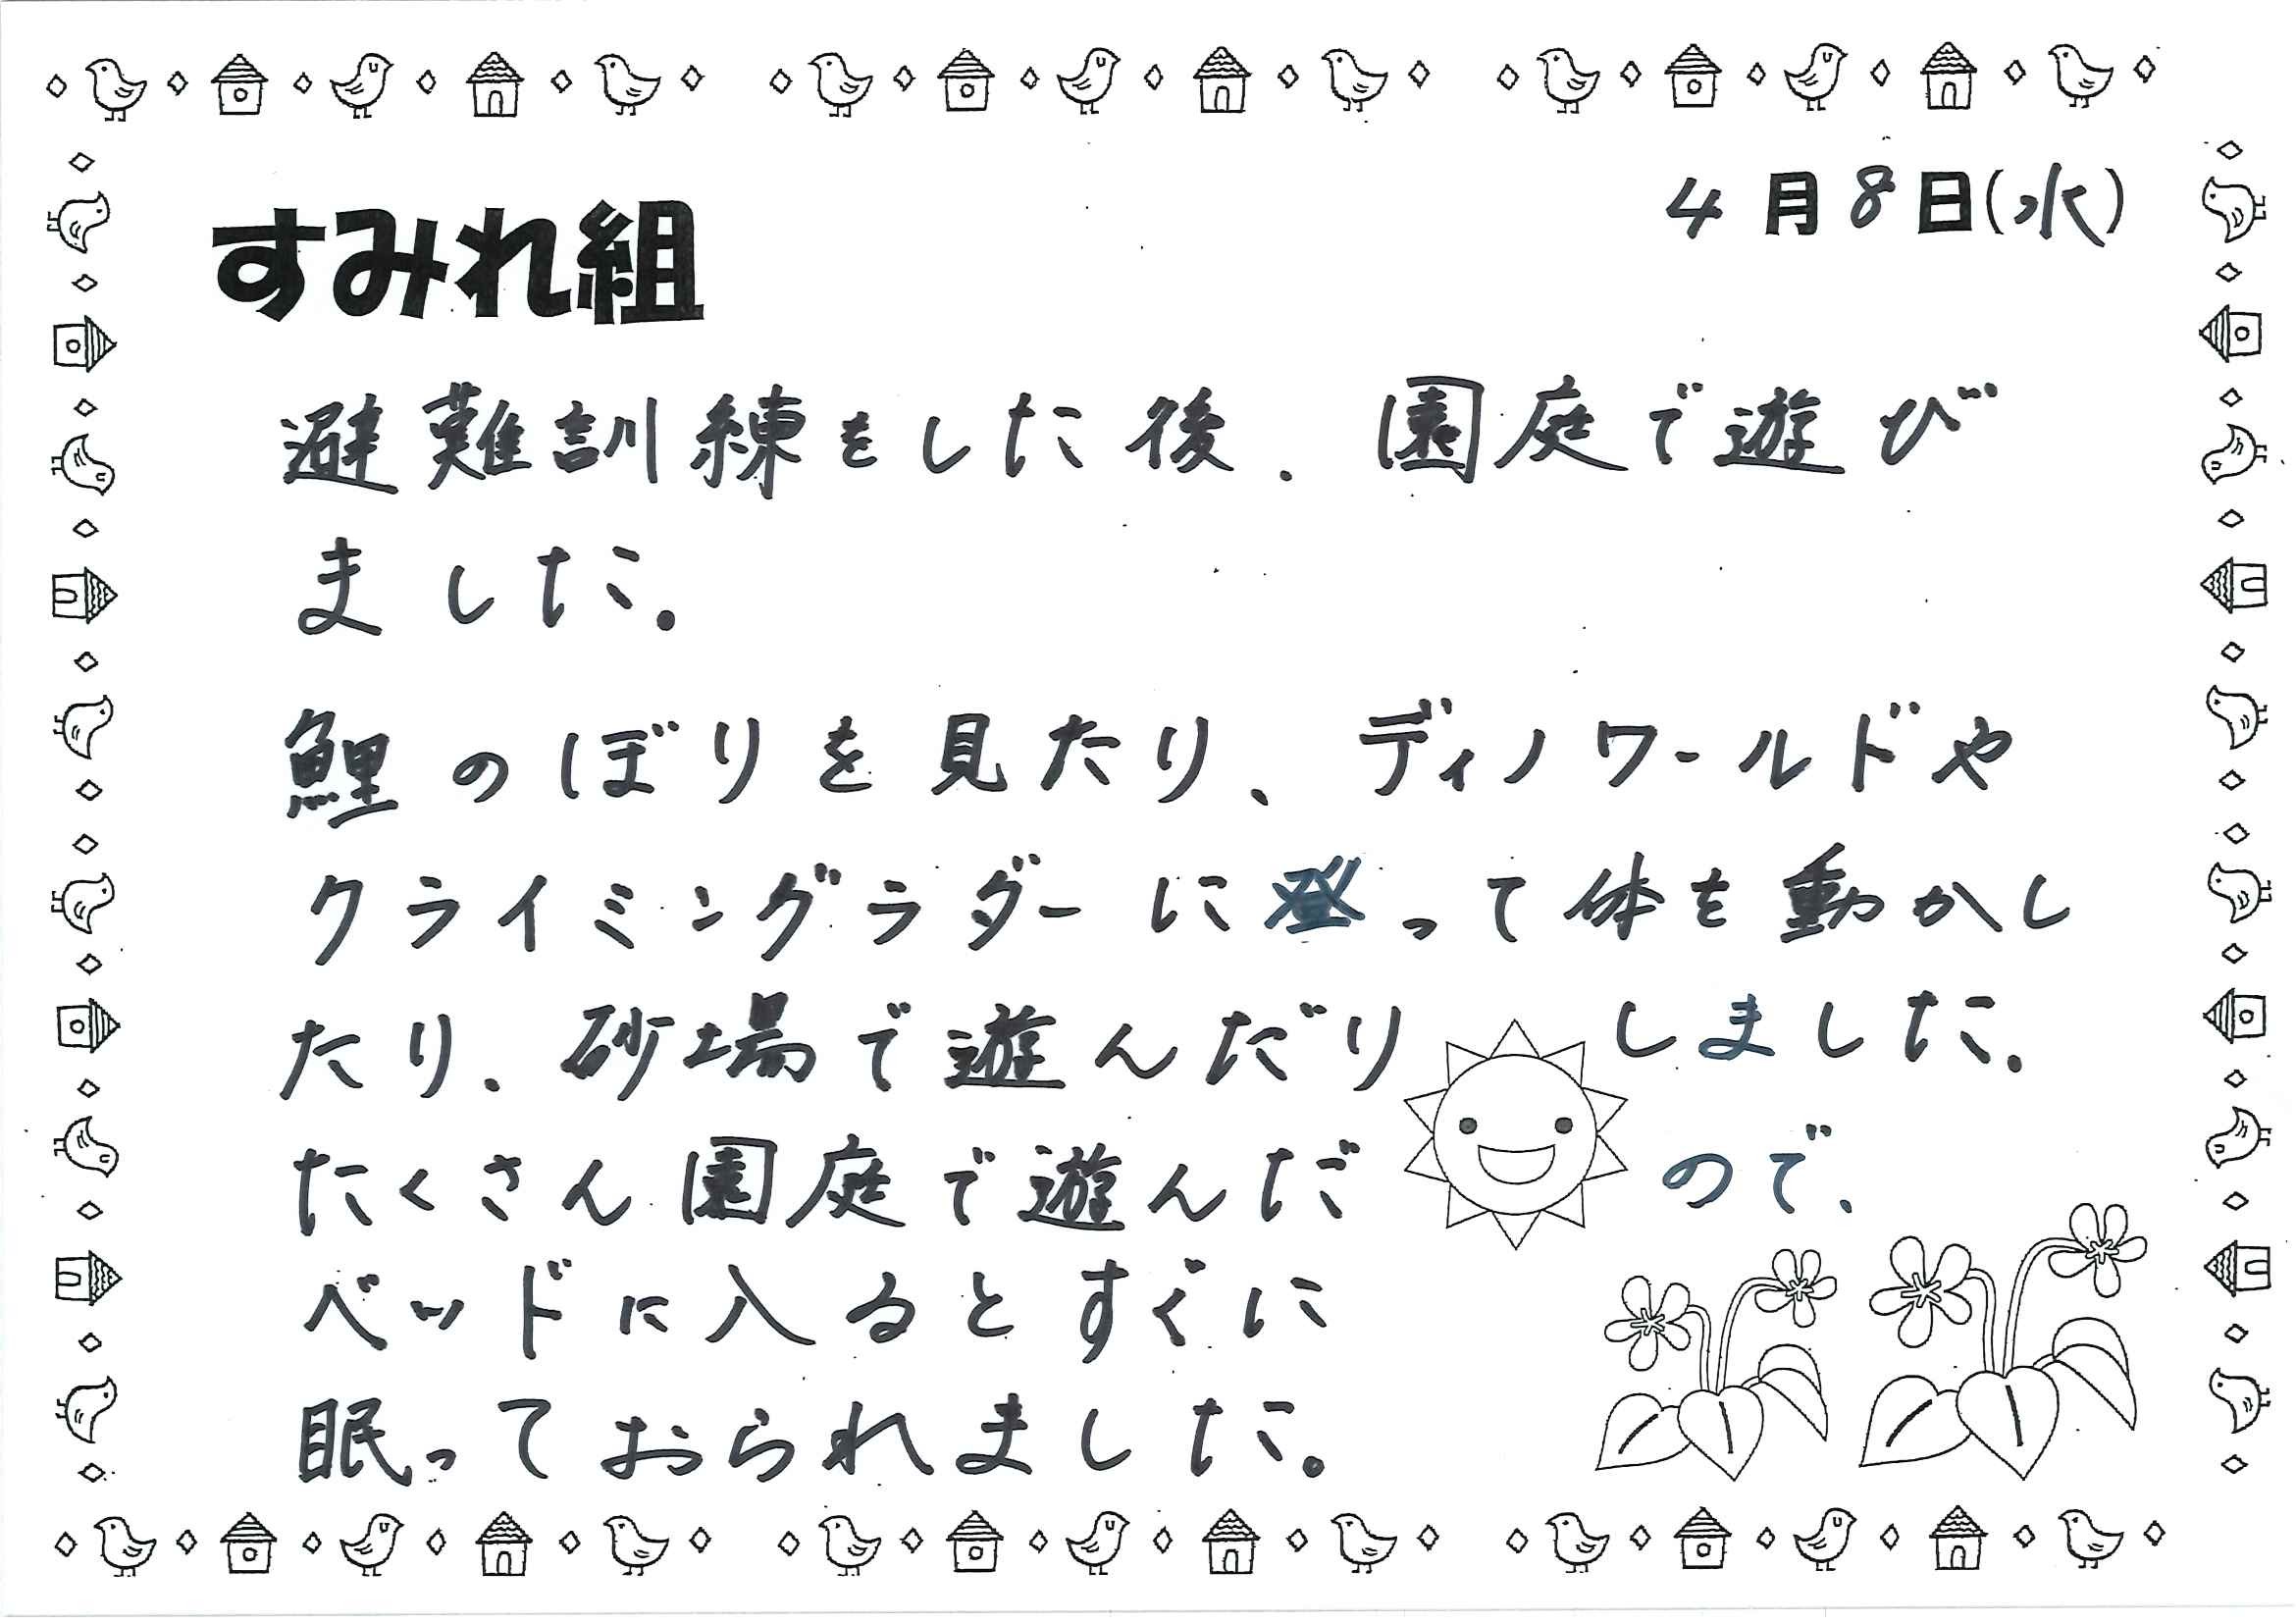 4月8日(水)
すみれ組
避難訓練をした後、園庭で遊び
ました。
鯉のぼりを見たり、ディノワールドや
クライミングラダーに登って体を動かし
たり、砂場で遊んだりしました。
たくさん園庭で遊んだので、
ベッドに入るとすぐに
眠っておられました。